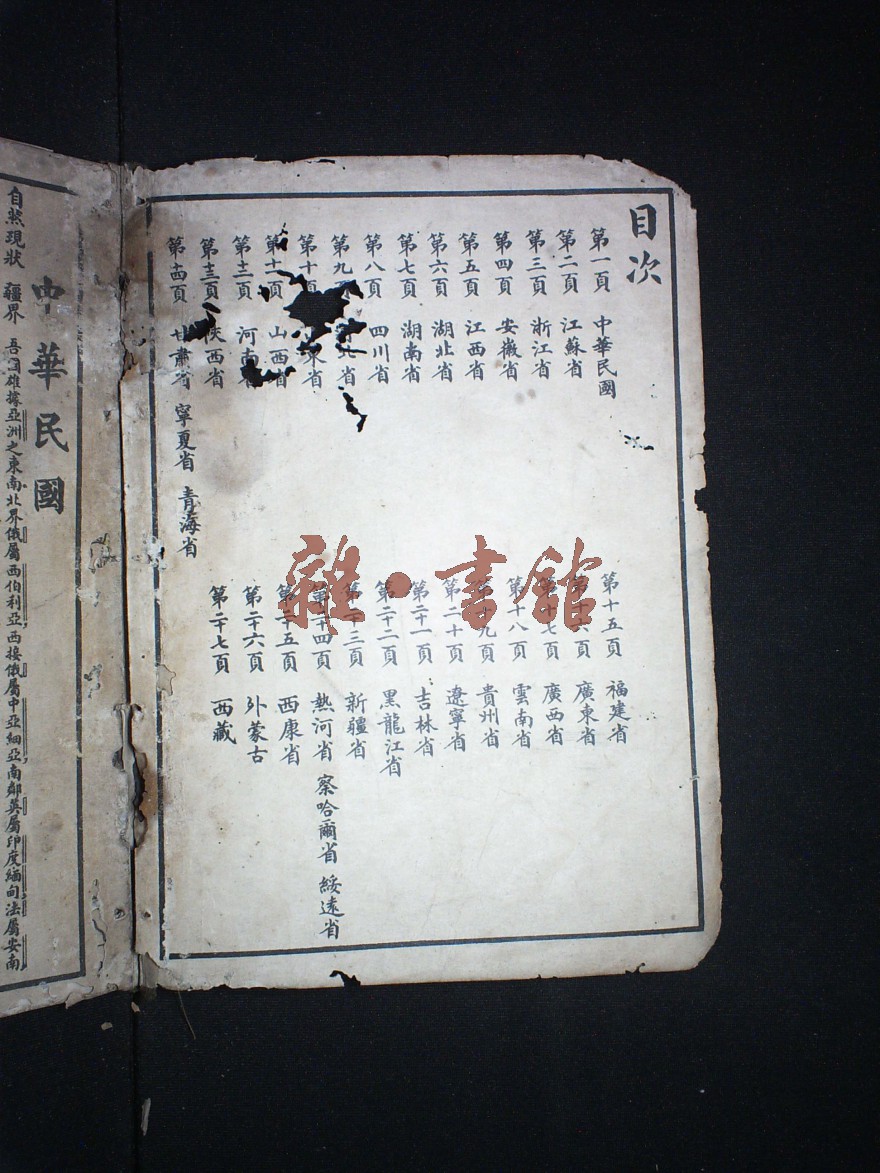 目次
第一頁 中華民國
第二頁 江蘇省
第三頁 浙江省
第四頁 安徽省
第五頁 江西省
第六頁 湖北省
第七頁 湖南省
第八頁 四川省
第九頁 北省
第十頁 東省
第十一 山西省
第十二頁 河南省
第十三頁 陝西省
第十四頁 甘肅省 寧夏省 青海省
第十五頁 福建省
第十六頁 廣東省
第十七頁 廣西省
第十八頁 雲南省
第十九頁 貴州省
第二十頁 遼寧省
第二十一頁 吉林省
第二十二頁 黑龍江省
第二十三頁 新疆省
第二十四頁 熱河省 察哈爾省 綏遠省
第二十五頁 西康省
第二十六頁 外蒙古
第二十七頁 西藏
雜·書館
中華民國
自然現狀 疆界 吾國雄據亞洲之東南北界俄屬西伯利亞西接俄屬中亞細亞南鄰英屬印度緬甸法屬安南